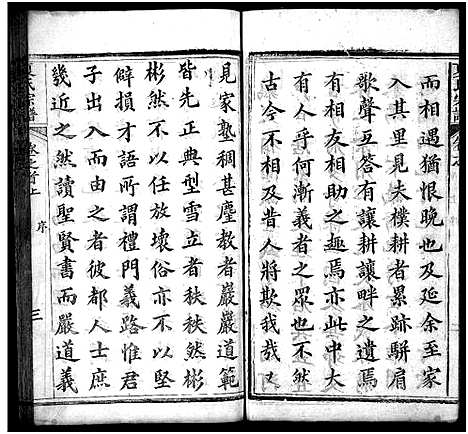 而相遇猶恨晚也及延余至家
入其里見夫樸耕者累跡駢肩
歌聲互答有讓耕讓畔之遺焉
相友相助之趣焉亦此中大
有人乎何漸義者之眾也不然
古今不相及昔人將欺我哉又
見家塾稠甚塵教者巖巖道範
皆先正典型雪立者秩秩然彬
彬然不以任放壞俗亦不以堅
僻損才語所謂禮門義路惟君
子出入由之者彼都人士庶
幾近之然讀聖賢書而嚴道義
夏氏宗譜
序
三